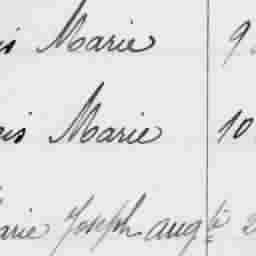 is Marie 9
is Marie 10
arie Joseph aug^te 2